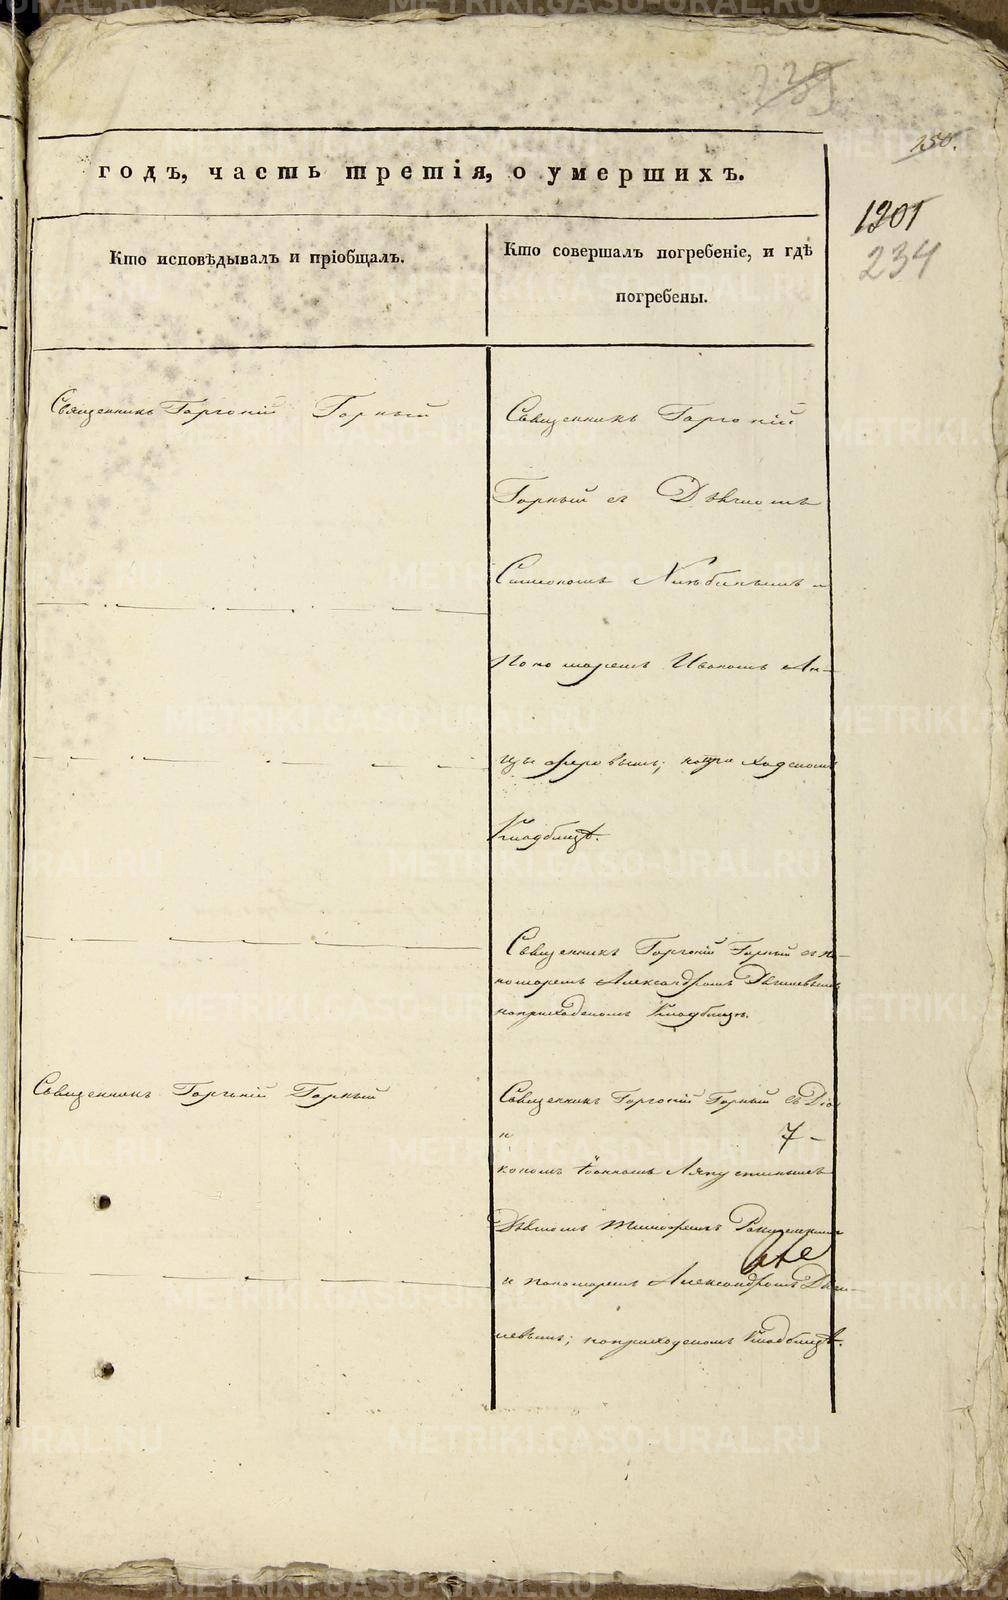 239
150.
годъ, часть третія, о умершихъ.
1201
234
Кто исповѣдывалъ и пріобщалъ.
Кто совершалъ погребеніе, и гдѣ
погребены.
Священникъ Горгоній Горный
Священникъ Горгоній
Горный съ Дьячкомъ
Симеономъ
Пономаремъ Иваномъ Ан-
цыферовымъ; на приходскомъ
Кладбищѣ.
Священникъ Горгоній Горный съ По-
номаремъ Александромъ
на приходскомъ Кладбищѣ.
Священникъ Горгоній Горный
Священникъ Горгоній Горный съ Діа
7-
кономъ Іоанномъ Ляпустинымъ
Дьячкомъ Тимофеемъ
и пономаремъ Александромъ
на приходскомъ Кладбищѣ.
METRIKI.GASO-URAL.RU